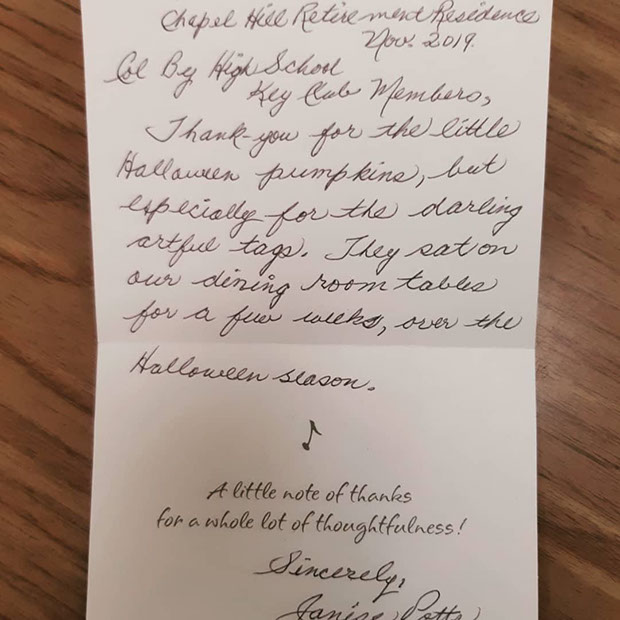 Chapel Hill Retirement Residence
Nov. 2019.
Col By High School
Key Club Members,
Thank-you for the little
Halloween pumpkins, but
especially for the darling
artful tags. They sat on
our dining room tables
for a few weeks, over the
Halloween season.
A little note of thanks
for a whole lot of thoughtfulness!
Sincerely,
Janise Potts